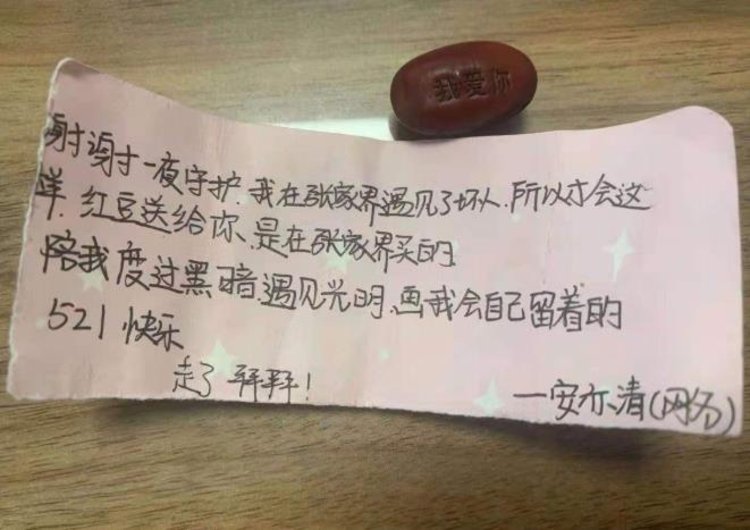 我爱你
谢谢一夜守护.我在张家界遇见了坏人.所以才会这
样.红豆送给你、是在张家界买的
陪我度过黑暗.遇见光明.画我会自己留着的
521快乐
走了拜拜!
一安亦清(网名)